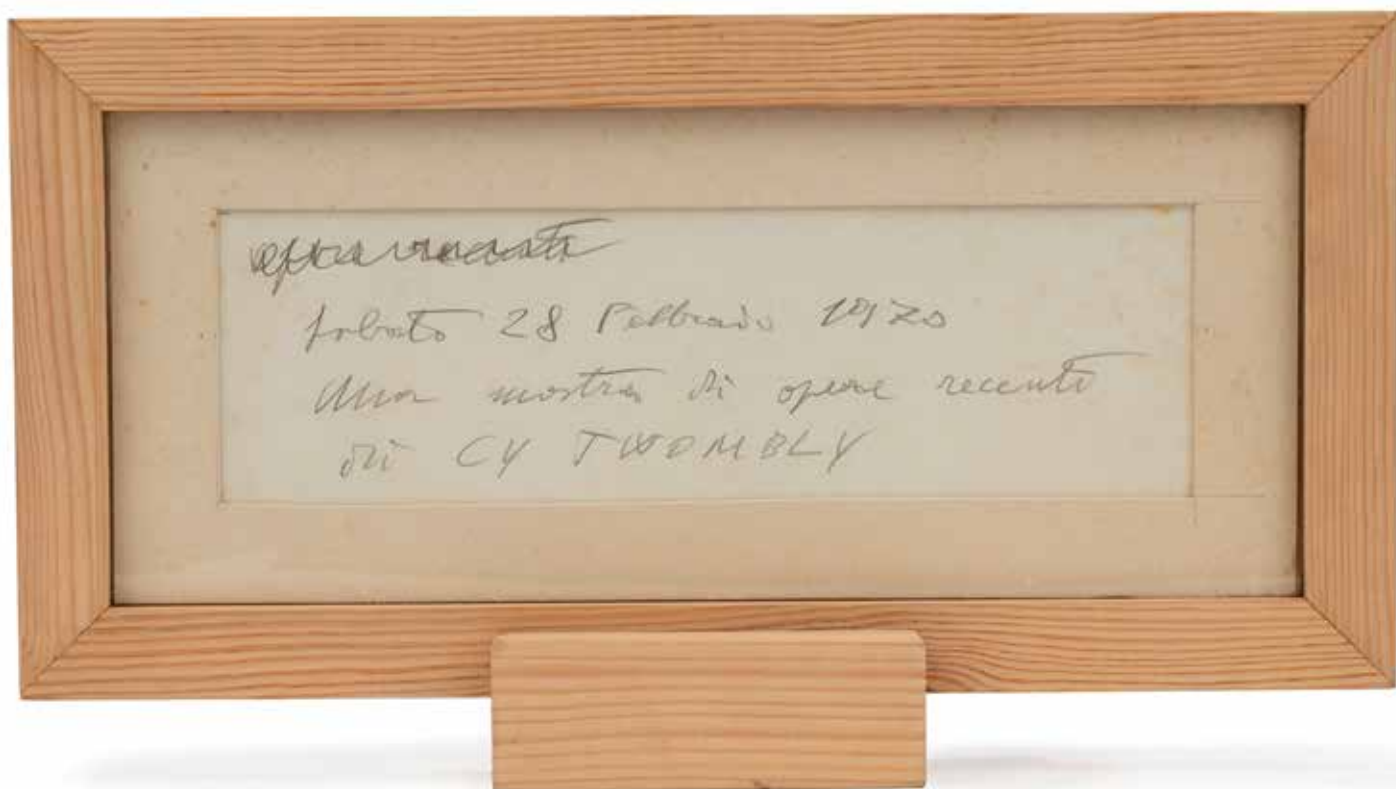 opere recenti
sabato 28 Febbraio 1970
una mostra di opere recenti
di CY TWOMBLY